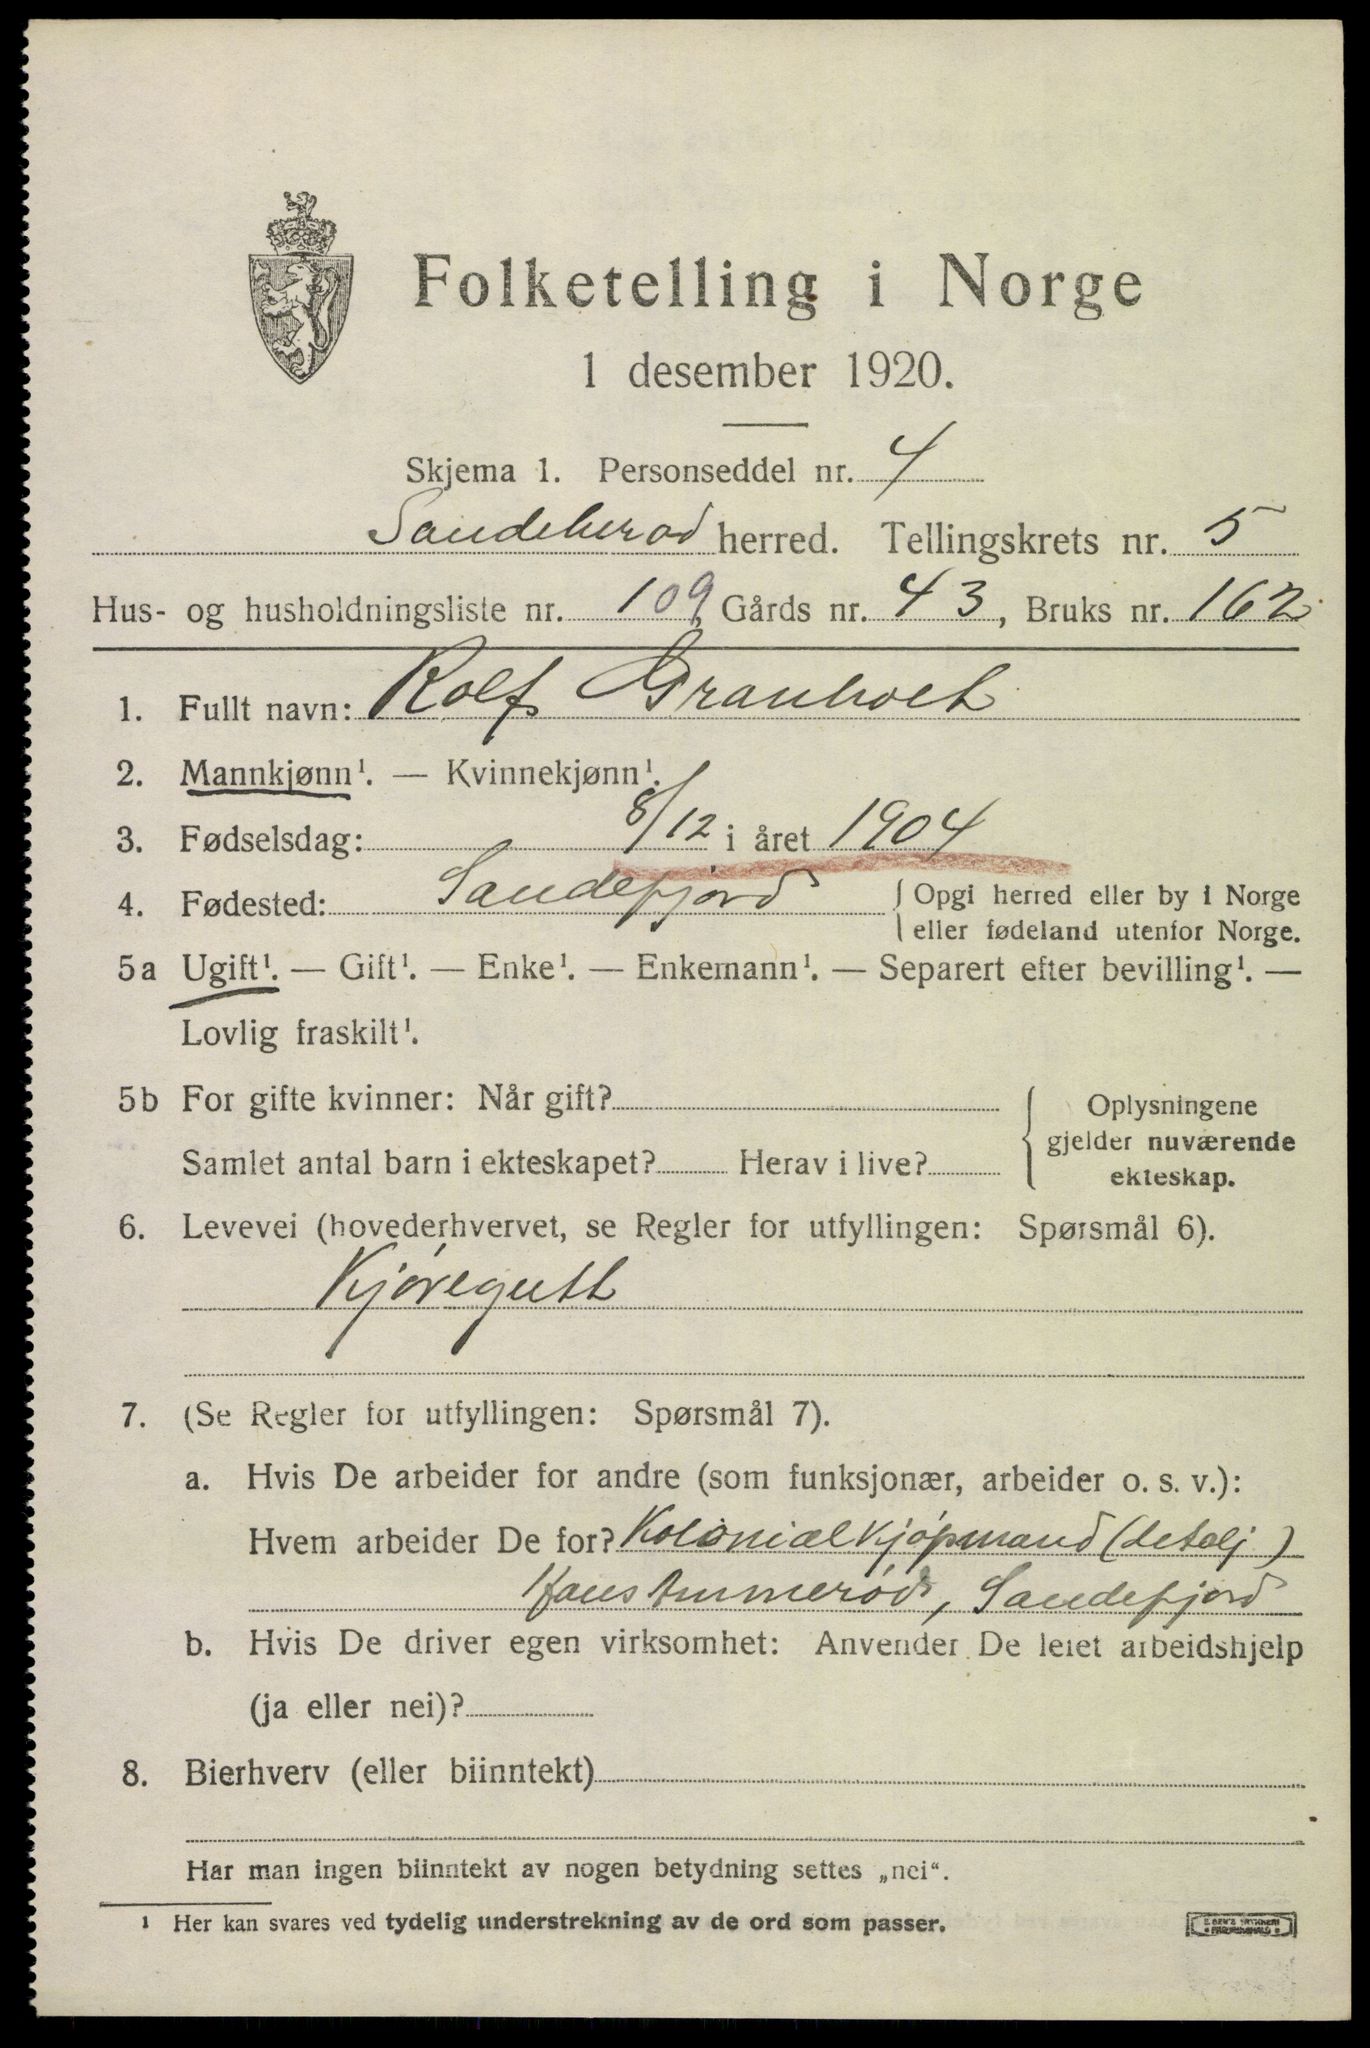 Folketelling i Norge
1 desember 1920.
Skjema 1. Personseddel nr. 4
Sandeherad herred. Tellingskrets nr. 5
Hus- og husholdningsliste nr. 109, Gårds nr. 43, Bruks nr. 162
1. Fullt navn: Rolf Granholt
2. Mannkjønn¹. — Kvinnekjønn¹.
3. Fødselsdag: 8/12 i året 1904
4. Fødested: Sandefjord { Opgi herred eller by i Norge
eller fødeland utenfor Norge.
5a Ugift¹. — Gift¹. — Enke¹. — Enkemann¹. — Separert efter bevilling¹. —
Lovlig fraskilt¹.
5b For gifte kvinner: Når gift? { Oplysningene
gjelder nuværende
Samlet antal barn i ekteskapet? Herav i live?
ekteskap.
6. Levevei (hovederhvervet, se Regler for utfyllingen: Spørsmål 6).
Kjøregutt
7. (Se Regler for utfyllingen: Spørsmål 7).
a. Hvis De arbeider for andre (som funksjonær, arbeider o. s. v.):
Hvem arbeider De for? Kolonialkjøpmand (detalj)
Hans Ammerød, Sandefjord
b. Hvis De driver egen virksomhet: Anvender De leiet arbeidshjelp
(ja eller nei)?
8. Bierhverv (eller biinntekt)
Har man ingen biinntekt av nogen betydning settes „nei“.
¹ Her kan svares ved tydelig understrekning av de ord som passer.